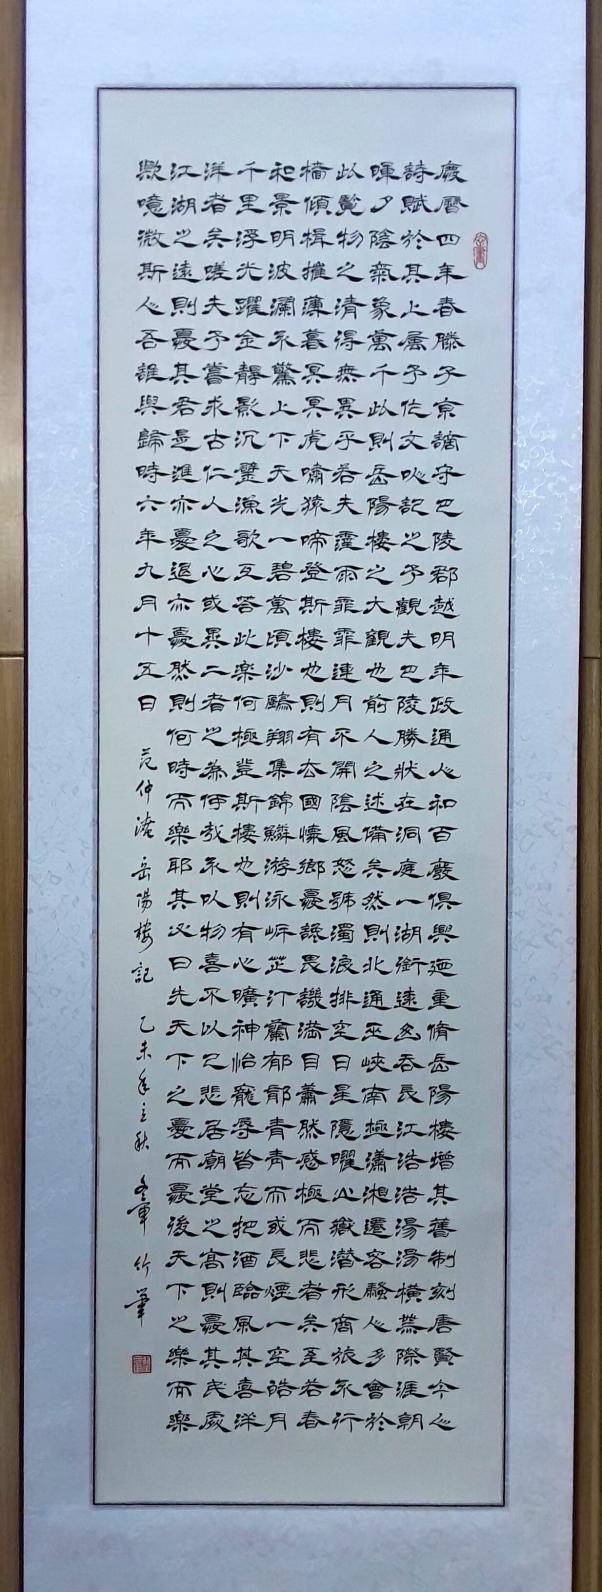 慶曆四年春滕子京謫守巴陵郡越明年政通人和百廢俱興迺重脩岳陽樓增其舊制刻唐賢今人
詩賦於其上屬予作文以記之予觀夫巴陵勝狀在洞庭一湖銜遠山吞長江浩浩湯湯橫無際涯朝
暉夕陰氣象萬千此則岳陽樓之大觀也前人之述備矣然則北通巫峽南極瀟湘遷客騷人多會於
此覽物之清得無異乎若夫霪雨霏霏連月不開陰風怒號濁浪排空日星隱曜山嶽潛形商旅不行
檣傾楫摧薄暮冥冥虎嘯猿啼登斯樓也則有去國懷鄉憂讒畏譏滿目蕭然感極而悲者矣至若春
和景明波瀾不驚上下天光一碧萬頃沙鷗翔集錦鱗游泳岸芷汀蘭郁郁青青而或長煙一空皓月
千里浮光躍金靜影沉璧漁歌互答此樂何極登斯樓也則有心曠神怡寵辱皆忘把酒臨風其喜洋
洋者矣嗟夫予嘗求古仁人之心或異二者之為何哉不以物喜不以己悲居廟堂之高則憂其民處
江湖之遠則憂其君是進亦憂退亦憂然則何時而樂耶其必曰先天下之憂而憂後天下之樂而樂
歟噫微斯人吾誰與歸時六年九月十五日 范仲淹 岳陽樓記 乙未年立秋 竹筆